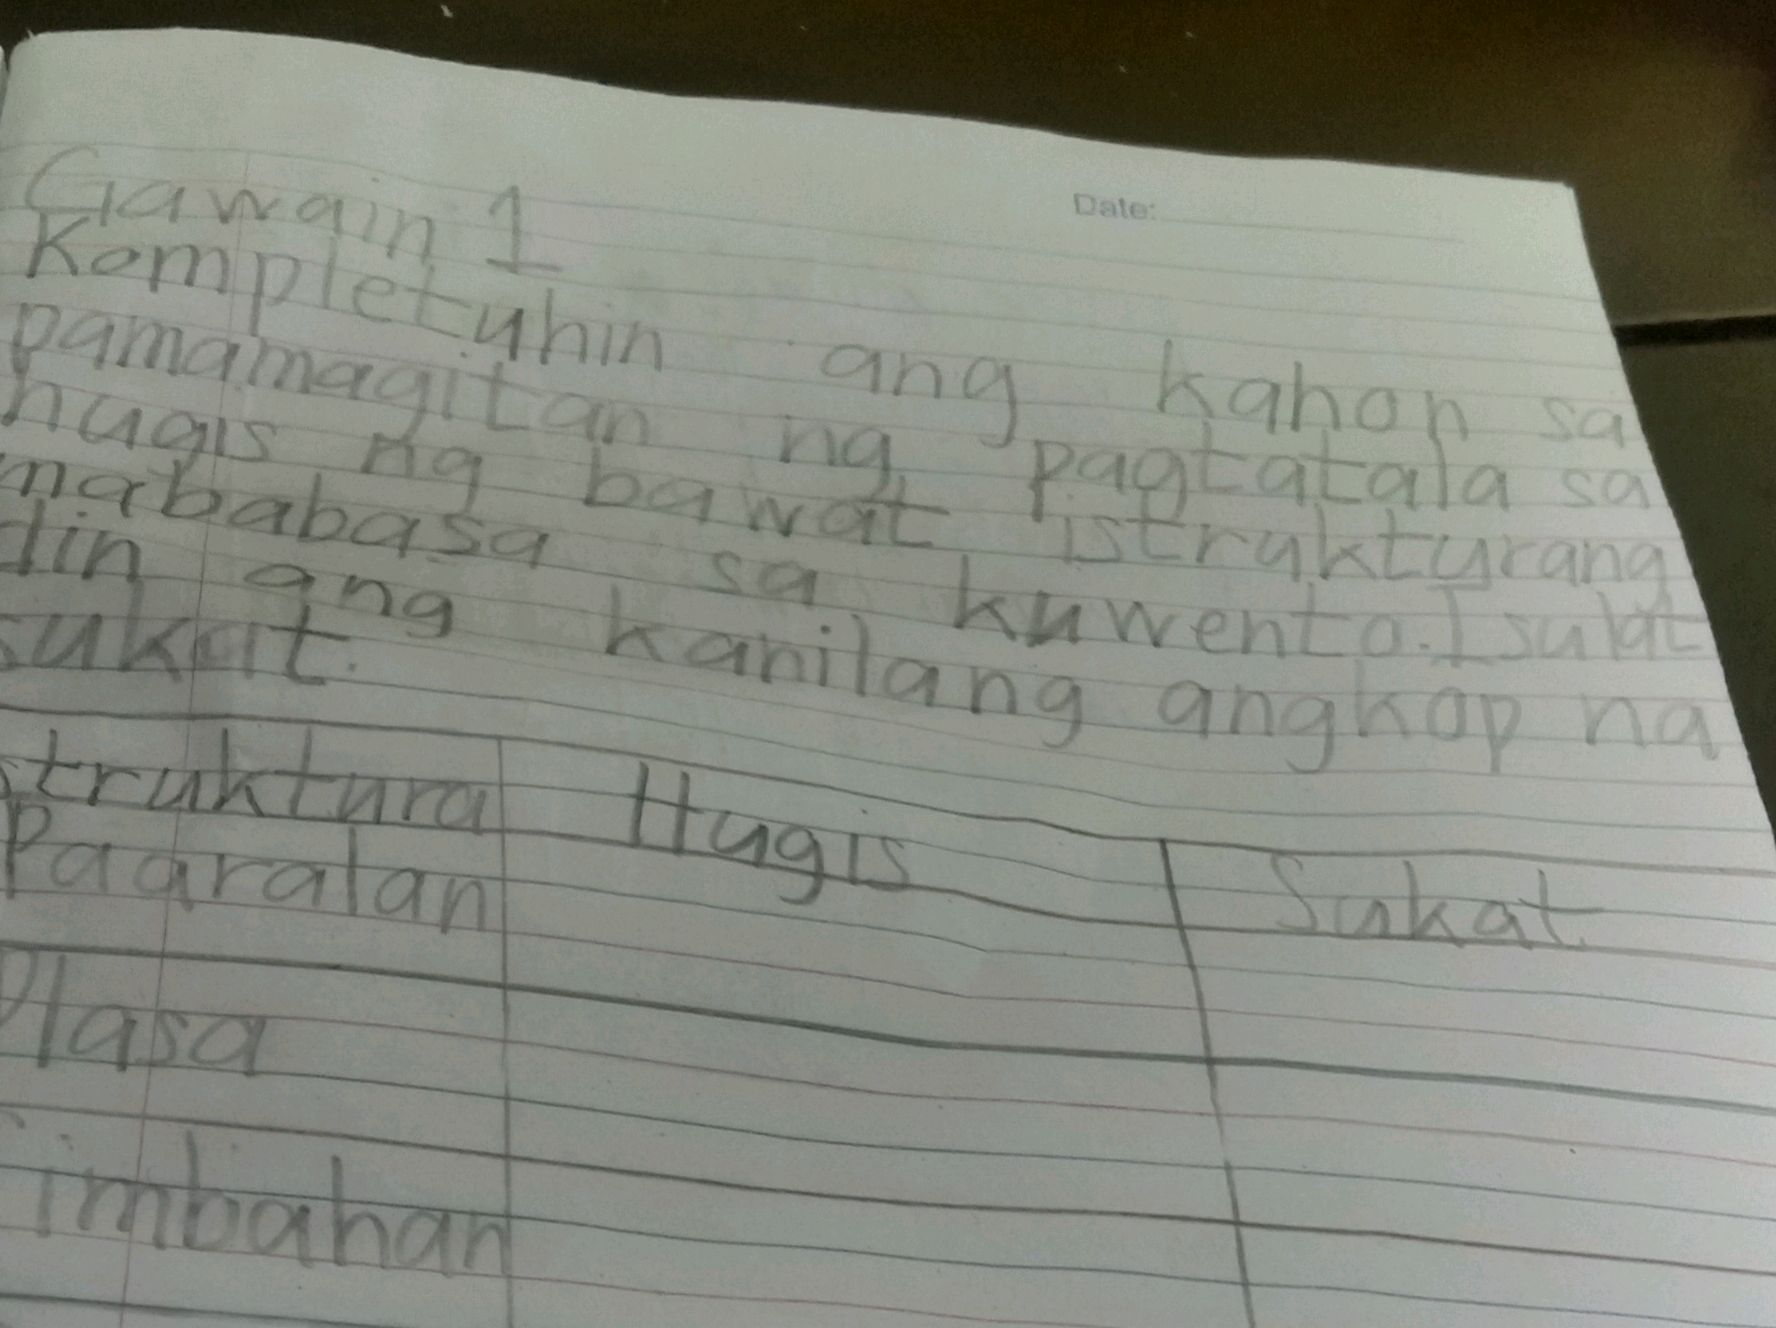 Date:
Gawain 1
Kompletuhin ang kahon sa
pamamagitan ng pagtatala sa
hugis ng bawat istrukturang
mababasa sa kuwento. Isulat
din ang kanilang angkop na
sukat.
struktura Hugis Sukat
Paaralan
Plasa
imbahan